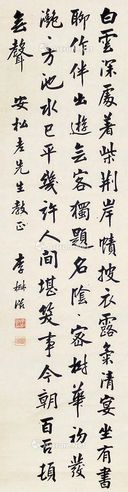 白雲深處著柴荆岸幘披衣露氣清宴坐有書
聊作伴出遊無客獨題名陰陰家樹華初發
灔灔方池水已平幾許人間堪笑事今朝百舌頓
無聲
安松老先生教正
李